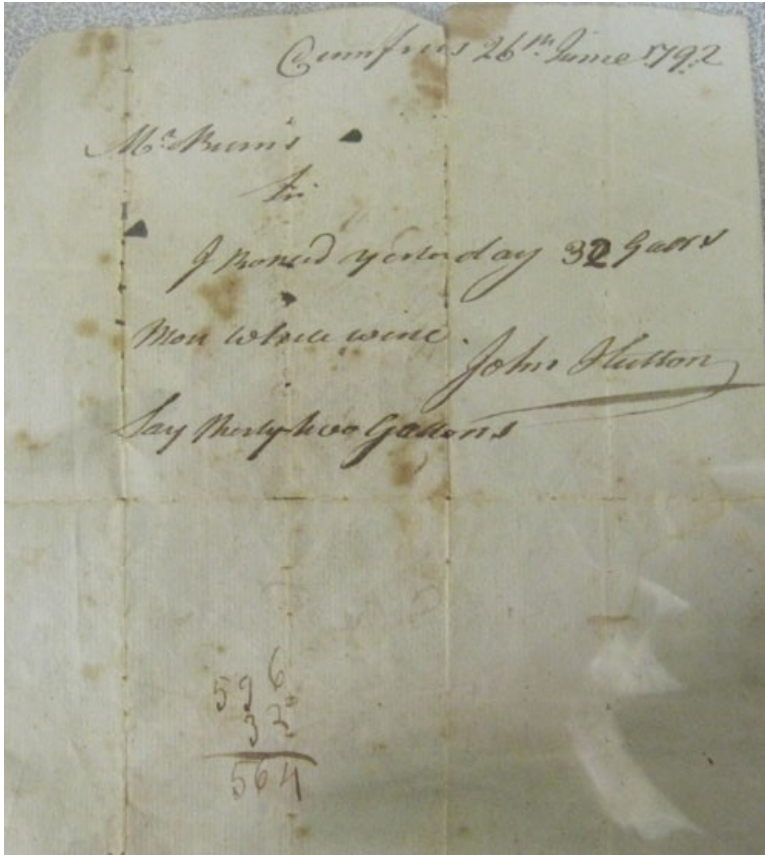 Dumfries 26th June 1792
Mr. Burns
Sir
I Racked yesterday 32 Gallons
More white wine.
John Hutton
Say Thirty two Gallons
596
32
564